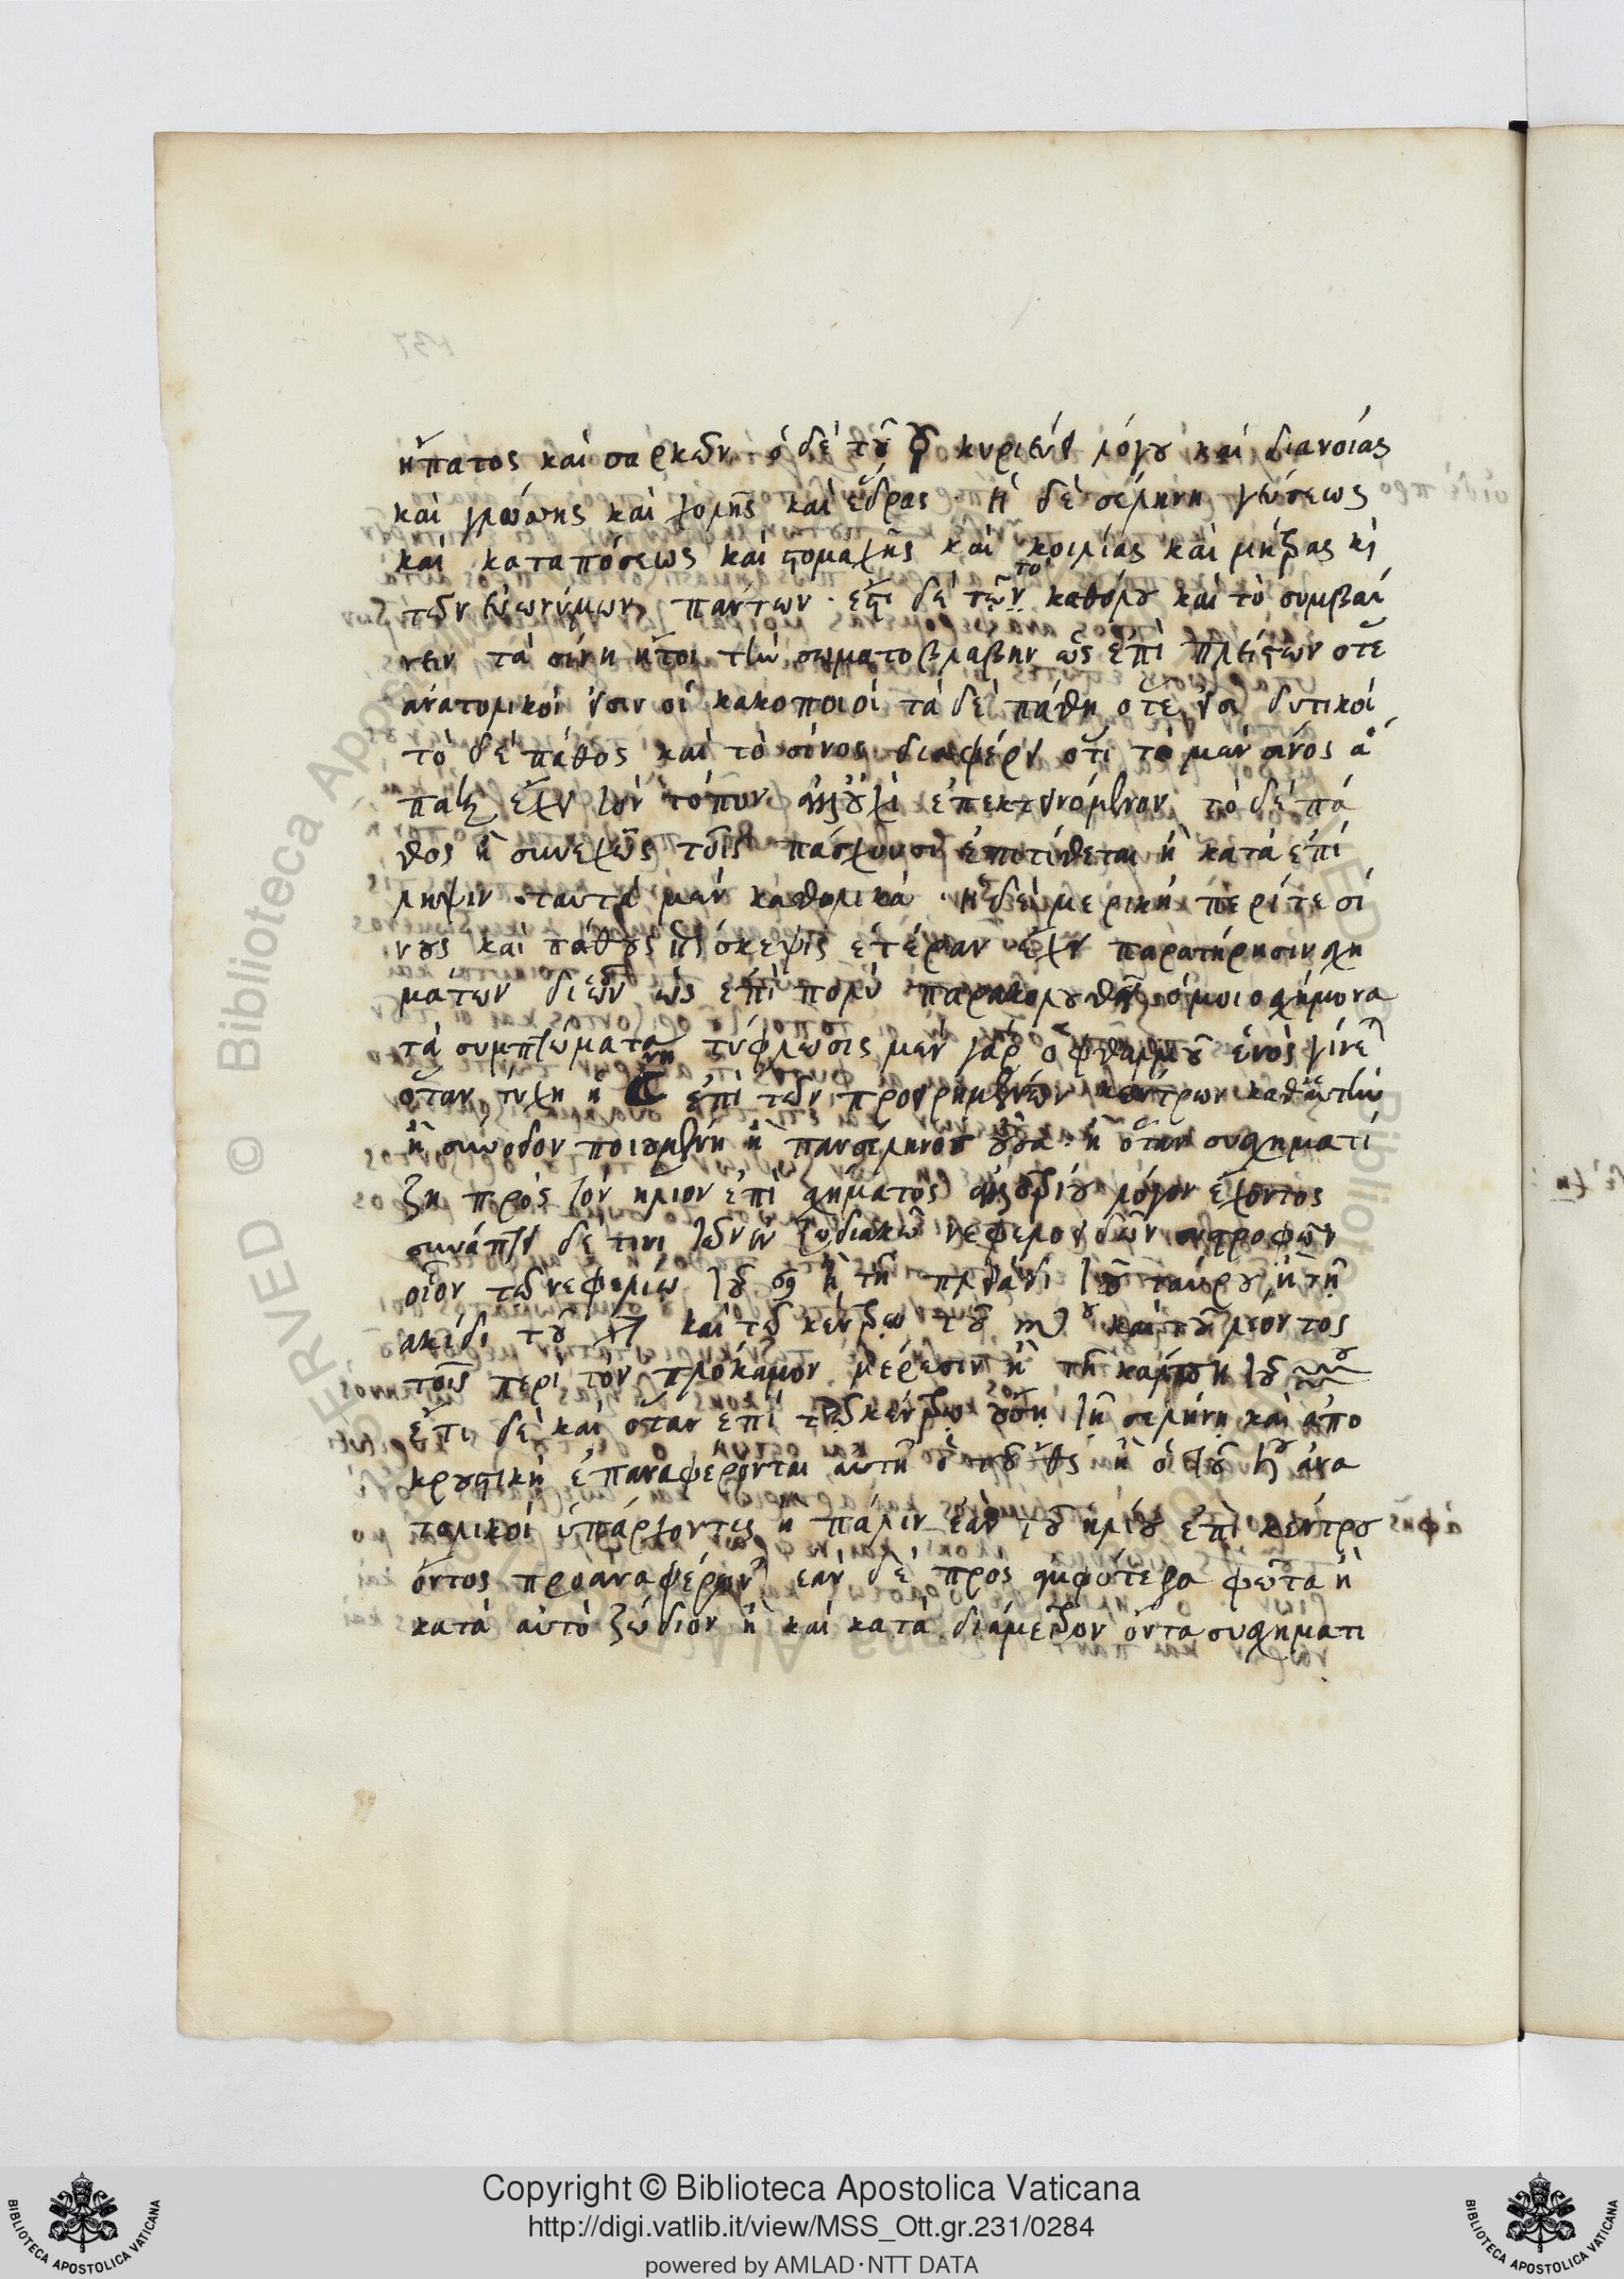 ἥπατος καὶ σαρκῶν. ὁ δὲ τοῦ ☿ κυριεύει λόγου καὶ διανοίας
καὶ γλώσσης καὶ χολῆς καὶ ἕδρας. Ἡ δὲ σελήνη γεύσεως
καὶ καταπόσεως καὶ στομάχης καὶ κοιλίας καὶ μήτρας κὶ
τῶν εὐωνύμων πάντων. ἔστι δὲ τῶν τὸ καθόλου καὶ τὸ συμβαί
νειν τὰ σίνη ἤτοι τὴν σωματοβλάβην ὡς ἐπὶ πλείστων ὅτε
ἀνατολικοὶ εἰσιν οἱ κακοποιοὶ τὰ δὲ πάθη ὅτε εἰσι δυτικοί
τὸ δὲ πάθος καὶ τὸ σίνος διαφέρει ὅτι τὸ μὲν σίνος ἅ
παξ ἔχει τὸν τόπον καὶ οὐχὶ ἐπεκτεινόμενον τὸ δὲ πά
θος ἢ συνεχῶς τοῖς πάσχουσι ἐπιτίθεται ἢ κατὰ ἐπί
ληψιν. ταῦτα μὲν καθολικά. ἡ δὲ μερικὴ περί τε σί
νους καὶ πάθους ἐπίσκεψις ἑτέραν ἔχει παρατήρησιν σχη
μάτων δι ὧν ὡς ἐπὶ πολὺ παρακολουθεῖ ὁμοιοσχήμονα
τὰ συμπτώματα τύφλωσις μὲν γὰρ ὀφθαλμοῦ ἑνὸς γίνε
ὅταν τύχῃ ἡ ☾νη ἐπὶ τῶν προειρημένων κέντρων καθ' αὑτὴν
ἢ σύνοδον ποιουμένη ἢ πανσέληνος οὖσα. ἢ ὅταν συσχηματί
ζη πρὸς τὸν ἥλιον ἐπὶ σχήματος λόγον ἔχοντος
συνάπτει δὲ τινι τῶν ἐν ζωδιακῶ νεφελοειδῶν συστροφῶν
οἷον τῶ νεφελίω τοῦ ♋ ἢ τῆ πλειάδι τοῦ ταύρου ἢ τῆ
ἀκίδι τοῦ ♐ καὶ τῶ κέντρω τοῦ ♏ου καὶ τοῦ λέοντος
τοῖς περὶ τὸν πλόκαμον μέρεσιν ἢ τῆ κάλπη τοῦ ♒ου
ἔτι δὲ καὶ ὅταν ἐπὶ τῶ κέντρω οὔση τῆ σελήνη καὶ ἀπο
κρουστικὴ ἐπαναφέρονται αὐτῆ ὁ τοῦ ἢ ὁ τοῦ ♄ου ἀνα
τολικοὶ ὑπάρχοντες ἢ πάλιν ἐὰν τοῦ ἡλίου ἐπὶ κέντρου
ὄντος προαναφέρων ἐὰν δὲ πρὸς ἀμφότερα φῶτα ἢ
κατὰ αὐτὸ ζώδιον ἢ καὶ κατὰ διάμετρον ὄντα συσχηματι
BIBLIOTECA APOSTOLICA VATICANA
Copyright © Biblioteca Apostolica Vaticana
http://digi.vatlib.it/view/MSS_Ott.gr.231/0284
powered by AMLAD·NTT DATA
BIBLIOTECA APOSTOLICA VATICANA